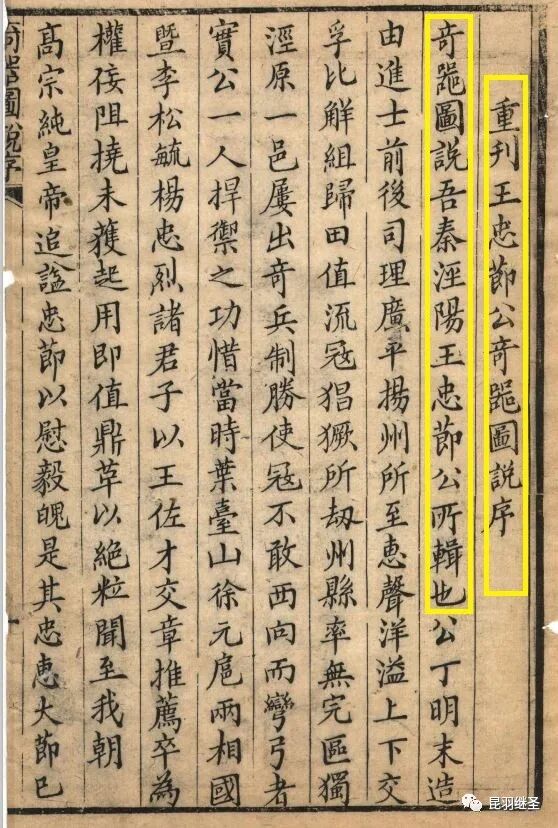 重刊王忠節公奇器圖說序
奇器圖說吾秦涇陽王忠節公所輯也公丁明末造
由進士前後司理廣平揚州所至惠聲洋溢上下交
孚比解組歸田值流冦猖獗所刼州縣率無完區獨
涇原一邑屢出奇兵制勝使冦不敢西向而彎弓者
實公一人捍禦之功惜當時葉臺山徐元扈兩相國
暨李松毓楊忠烈諸君子以王佐才交章推薦卒為
權佞阻撓未獲起用即值鼎革以絶粒聞至我朝
髙宗純皇帝追謚忠節以慰毅魄是其忠惠大節已
奇器圖說序
昆羽继圣